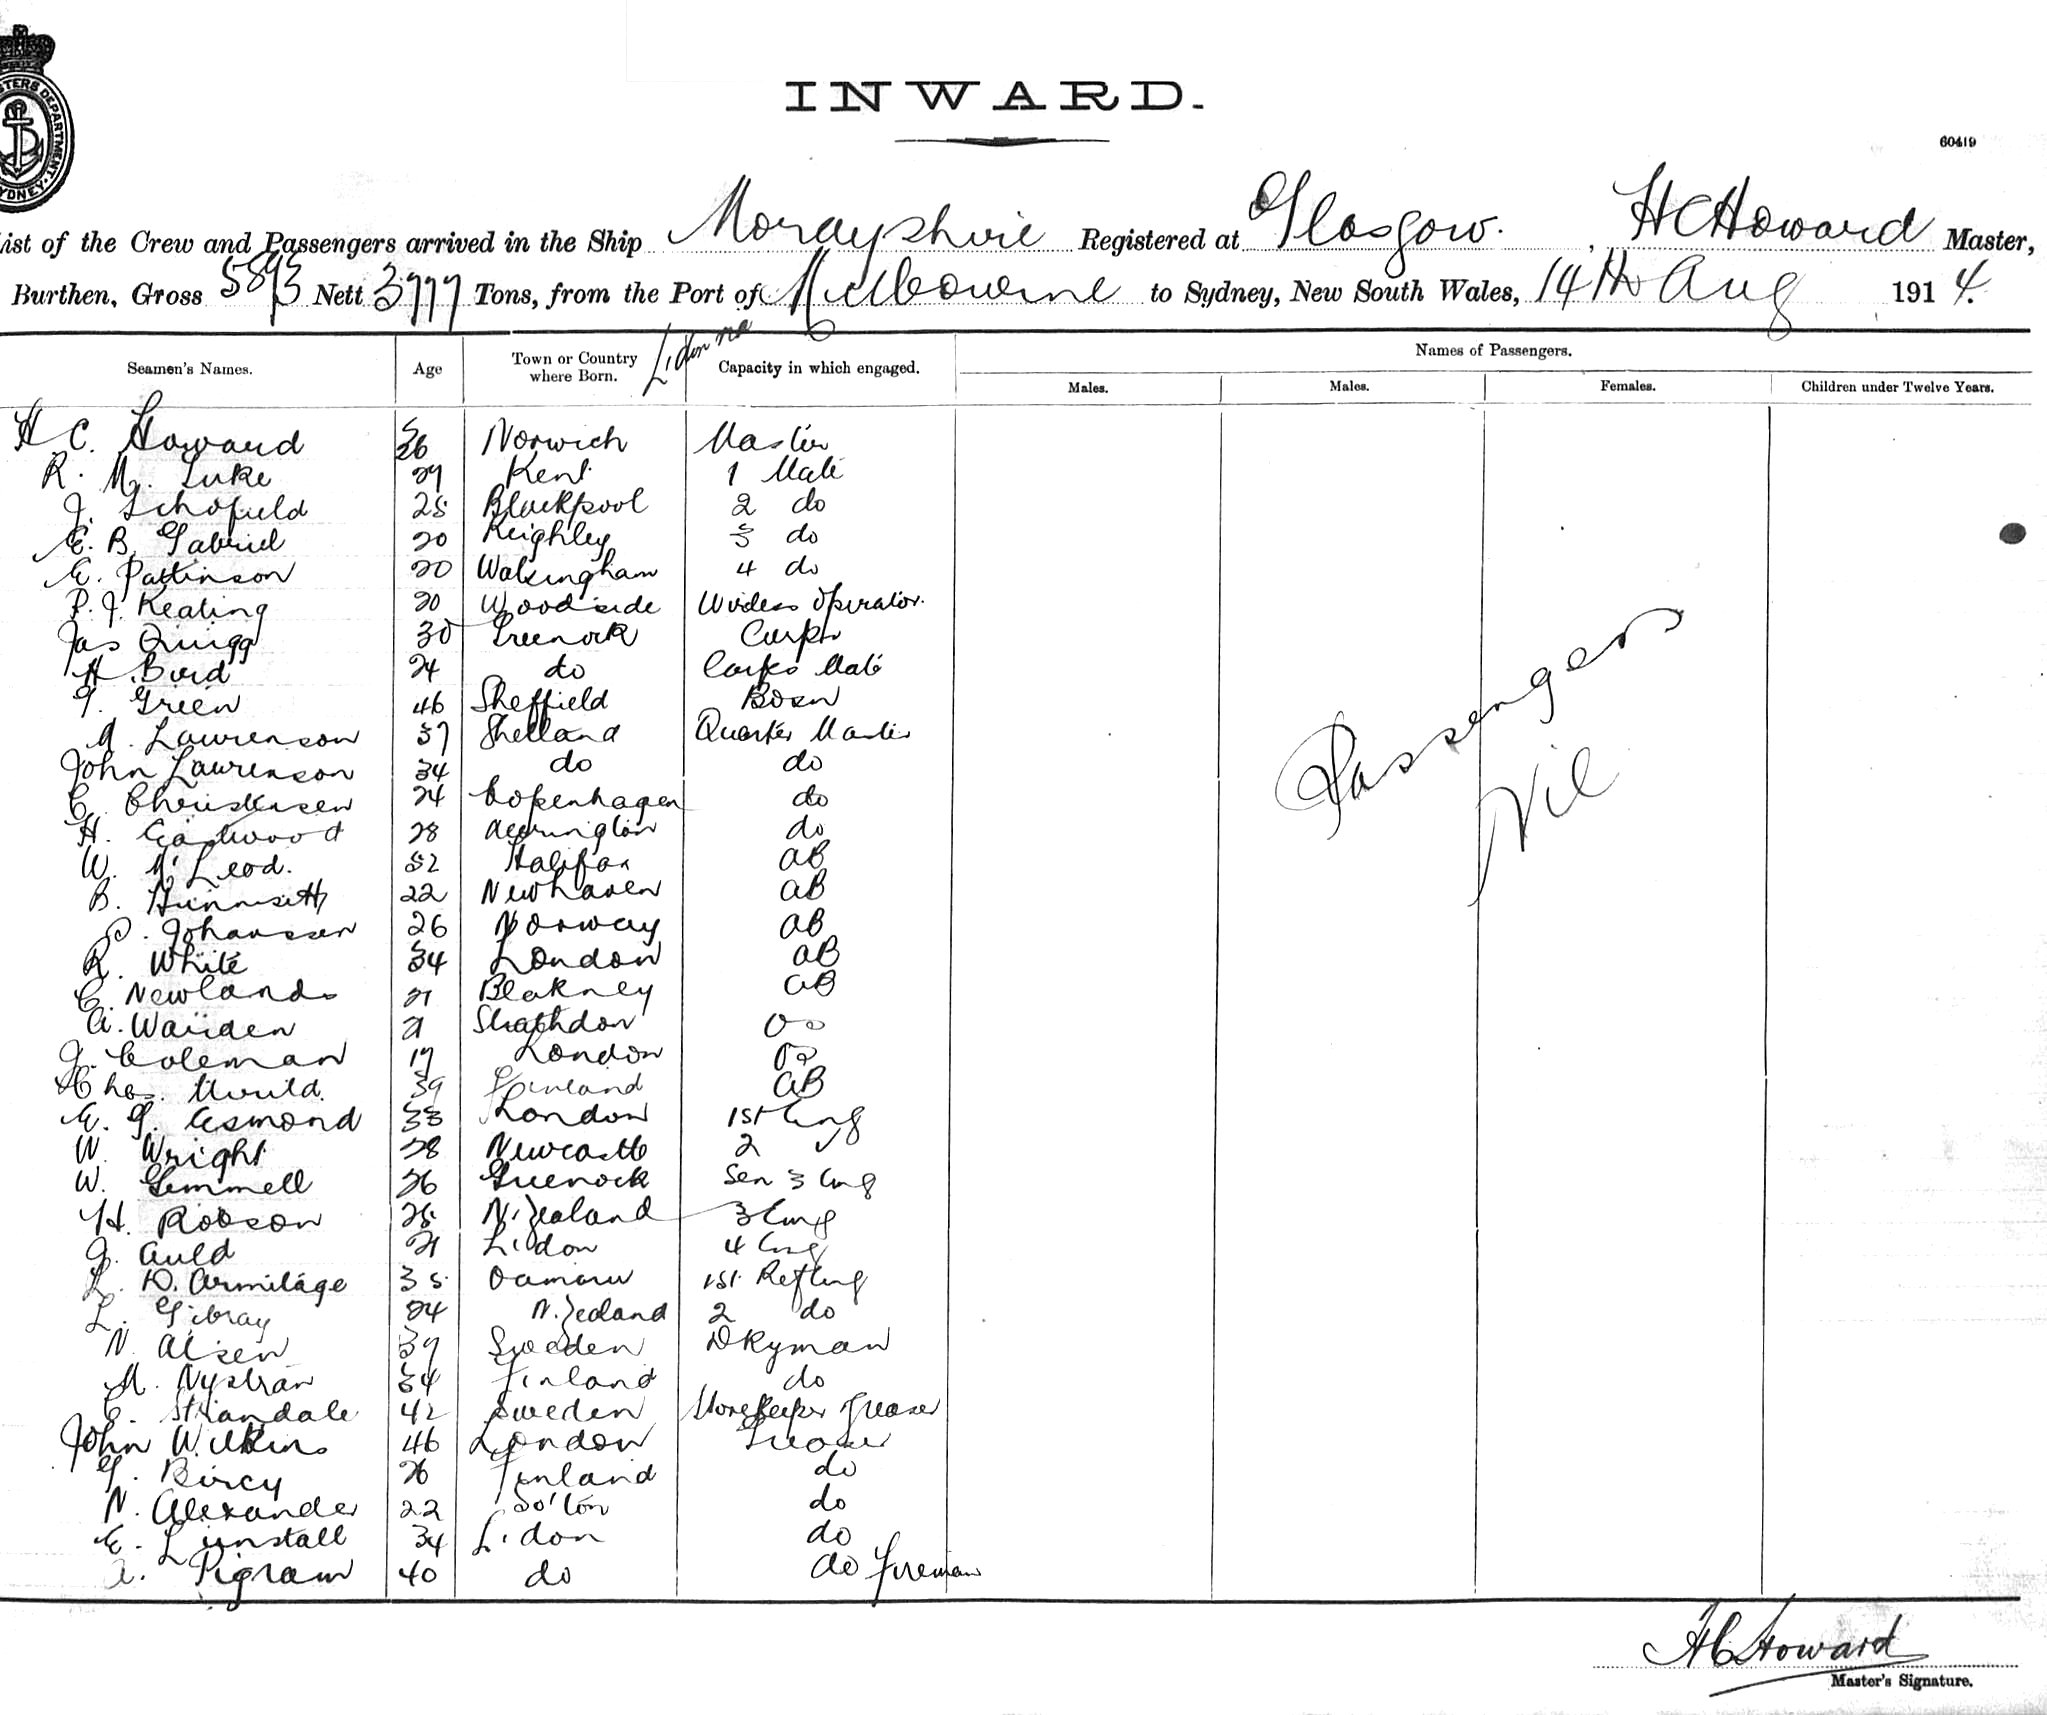 INWARD.
60419
STERS DEPARTMENT. SYDNEY.
List of the Crew and Passengers arrived in the Ship Morayshire Registered at Glasgow. , H C Howard Master,
Burthen, Gross 5893 Nett 3777 Tons, from the Port of Melbourne to Sydney, New South Wales, 14th Aug 1914.
Seamen's Names. Age Town or Country where Born. Capacity in which engaged. Names of Passengers.
Males. Males. Females. Children under Twelve Years.
H C. Howard Norwich Master
R. M. Luke 29 Kent 1 Mate
J. Schofield 25 Blackpool 2 do
E. B. Gabriel 20 Keighley 3 do
E. Pattinson 20 Walsingham 4 do
P. J. Keating 20 Woodside Wireless Operator.
Jas Quigg 30 Greenock Carptr
H. Bird 24 do Carps Mate
G. Green 46 Sheffield Bosn
M. Lawrenson 37 Shetland Quarter Master
John Lawrenson 34 do do
C. Christensen 24 Copenhagen do
H. Eastwood 28 Accrington do
W. McLeod. 52 Halifax AB
B. Hinnsett 22 Newhaven AB
P. Johanssen 26 Norway AB
R. White 34 London AB
C. Newlands 21 Blakney AB
A. Warden 21 Strathdon OS
J. Coleman 17 London OS
Chas. 39 Finland AB
E. G. Esmond 33 London 1st Eng
W. Wright 28 Newcastle 2 "
W. Gemmell 26 Greenock Sen 3 Eng
H. Robson 25 N. Zealand 3 Eng
J. Auld 21 L'don 4 Eng
L. D. Armitage 35 Oamaru 1st Ref Eng
L. Gibray 24 N. Zealand 2 do
N. Alsen 39 Sweden Dkyman
M. Nystran 34 Finland do
C. Strandale 42 Sweden Storekeeper Greaser
John Wilkins 46 London Greaser
G. Bircy 26 Finland do
N. Alexander 22 So'ton do
E. Linstall 34 L'don do
A. Pigram 40 do do Fireman
Passengers
Nil
H C Howard
Master's Signature.